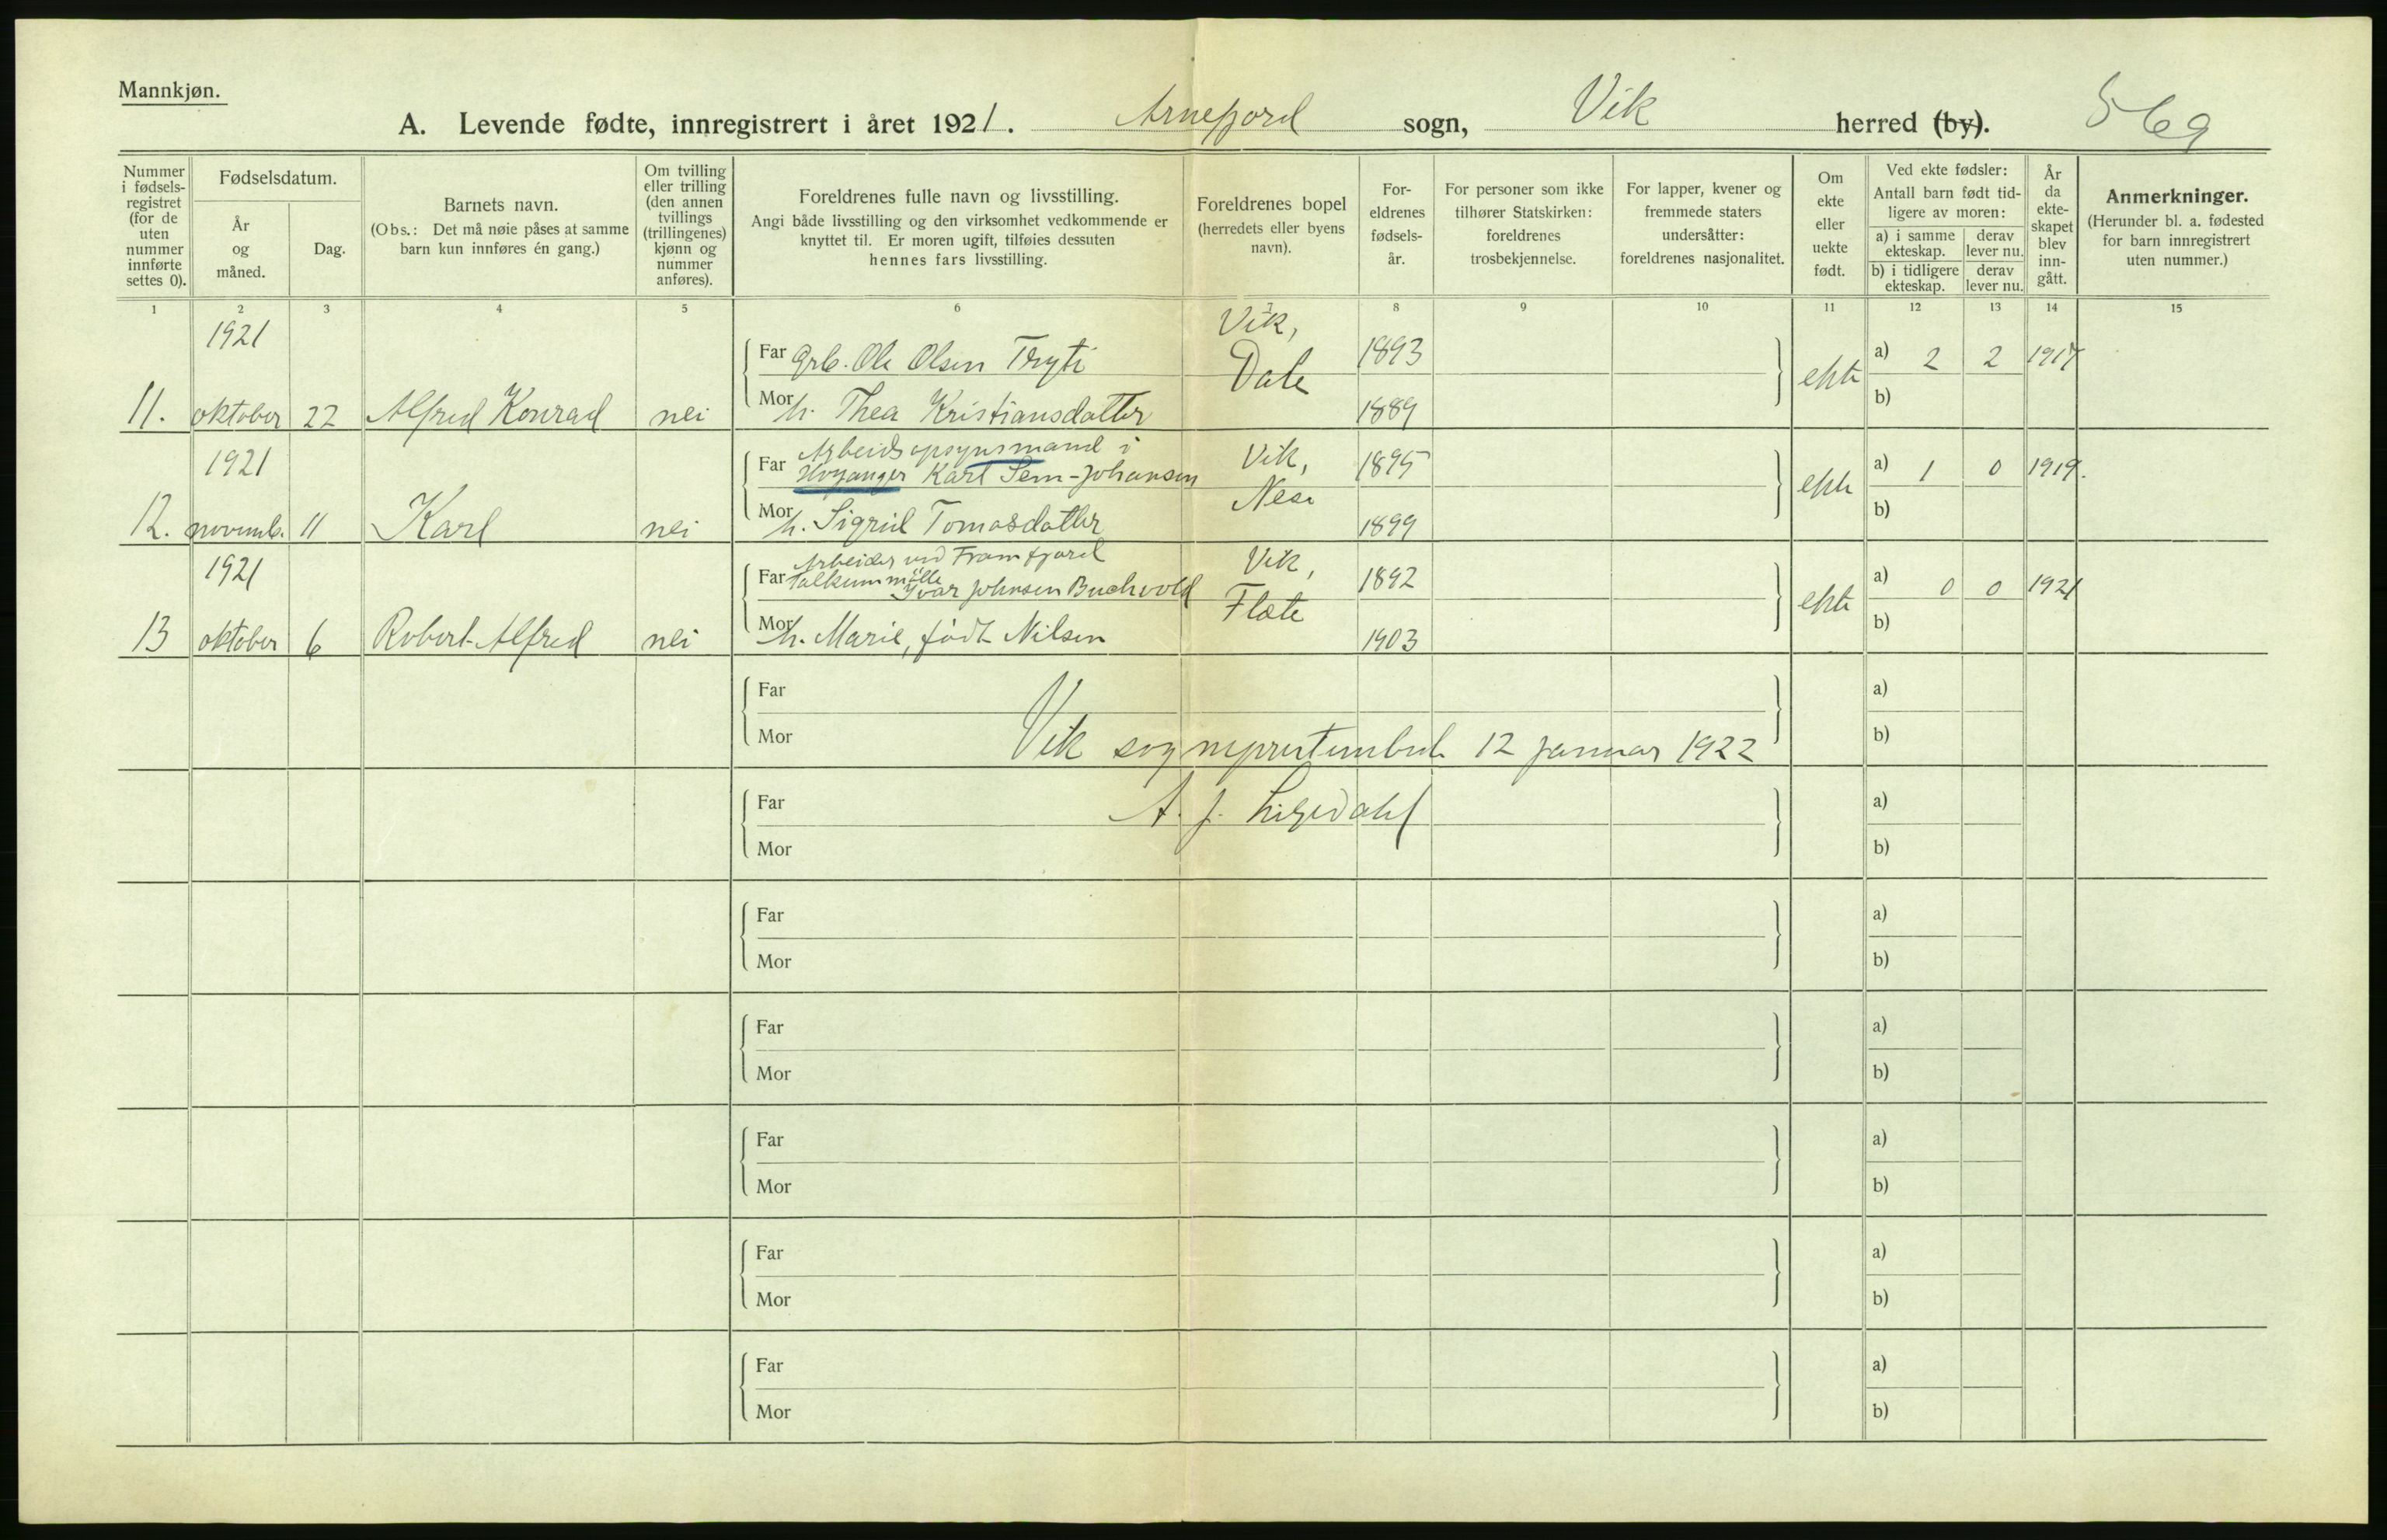 Mannkjøn.
A. Levende fødte, innregistrert i året 1921. Arnefjord sogn, Vik herred (by). 569
Nummer i fødsels-registret (for de uten nummer innførte settes 0).
Fødselsdatum.
År og måned.
Dag.
Barnets navn.
(Obs.: Det må nøie påses at samme barn kun innføres én gang.)
Om tvilling eller trilling (den annen tvillings (trillingenes) kjønn og nummer anføres).
Foreldrenes fulle navn og livsstilling.
Angi både livsstilling og den virksomhet vedkommende er knyttet til. Er moren ugift, tilføies dessuten hennes fars livsstilling.
Foreldrenes bopel (herredets eller byens navn).
For-eldrenes fødsels-år.
For personer som ikke tilhører Statskirken: foreldrenes trosbekjennelse.
For lapper, kvener og fremmede staters undersåtter: foreldrenes nasjonalitet.
Om ekte eller uekte født.
Ved ekte fødsler: Antall barn født tid-ligere av moren:
a) i samme ekteskap. derav lever nu.
b) i tidligere ekteskap. derav lever nu.
År da ekte-skapet blev inn-gått.
Anmerkninger.
(Herunder bl. a. fødested for barn innregistrert uten nummer.)
1 2 3 4 5 6 7 8 9 10 11 12 13 14 15
1921 Vik,
Far grb. Ole Olsen Tryti Dale 1893 ekte a) 2 2 1917
11. oktober 22 Alfred Konrad nei Mor h. Thea Kristiansdatter 1889 b)
1921 Arbeidsopsynsmand i Vik,
Far Høyanger Karl Sem-Johansen Nese 1895 ekte a) 1 0 1919.
12. novemb. 11 Karl nei Mor h. Sigrid Tomasdatter 1899 b)
1921 Arbeider ved Framfjord Vik,
Far Talkummølle Ivar Johnsen Buchvold Flate 1892 ekte a) 0 0 1921
13 oktober 6 Robert Alfred nei Mor h. Marie, født Nilsen 1903 b)
Far a)
Mor Vik sogneprestembede 12 januar 1922 b)
Far A. J. a)
Mor b)
Far a)
Mor b)
Far a)
Mor b)
Far a)
Mor b)
Far a)
Mor b)
Far a)
Mor b)